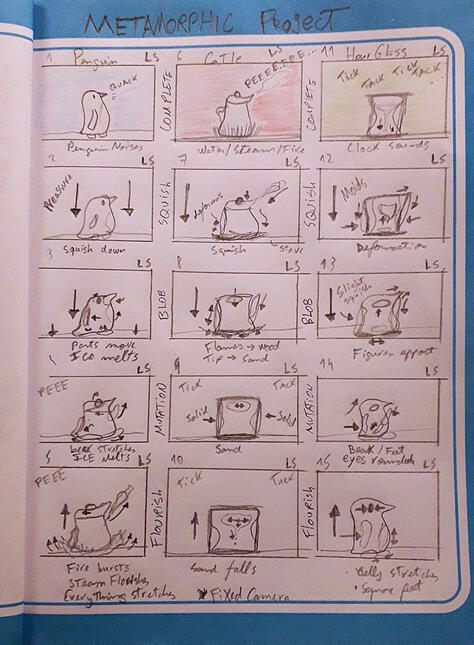 METAMORPHIC Project
1 Penguin LS
QUACK
Penguin Noises
COMPLETE
6 Catle LS
PEEEEEEE...
Water/Steam/Fire
COMPLETE
11 HourGlass LS
TICK TACK TICK TACK
Clock sounds
2 LS
Pressure
Squish down
SQUISH
7 LS
deforms
Squish
stove
SQUISH
12 LS
Molds
Deformation
3 LS
Parts move
ICE melts
BLOB
8 LS
Flames → wood
Tip → Sand
BLOB
13 LS
Slight squish
Figures appart
4 LS
PEEE
beak stretches
ICE Melts
MUTATION
9 LS
TICK TACK
Solid
Solid
Sand
MUTATION
14 LS
Beak/Feet
eyes rounded
5 LS
PEEE
Fire bursts
Steam Flourishes
Everything stretches
FLOURISH
10 LS
Tick Tack
Sand falls
* Fixed Camera
FLOURISH
15 LS
• Belly stretches
• Square feet